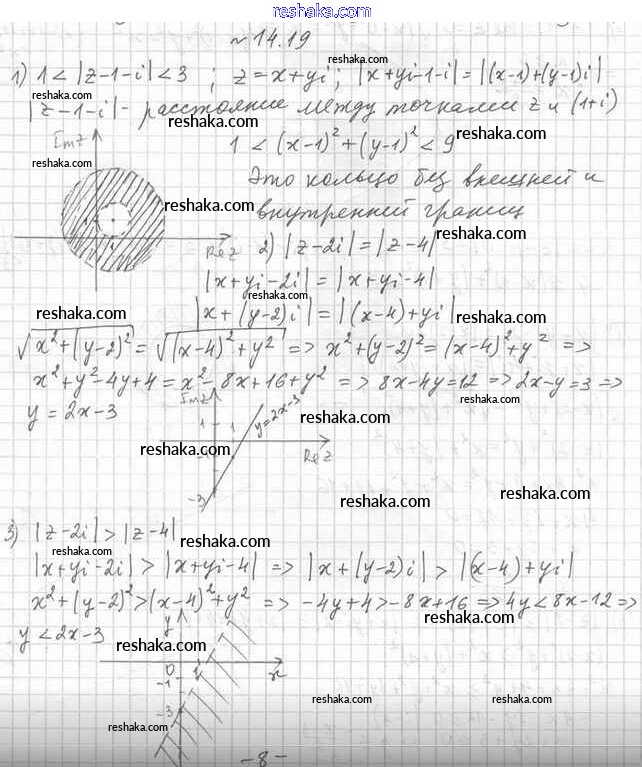 reshaka.com
№14.19
1) 1 < |z-1-i| < 3 ; z = x+yi ; |x+yi-1-i| = |(x-1)+(y-1)i|
reshaka.com
|z-1-i| - расстояние между точками z и (1+i)
reshaka.com
Imz
1 < (x-1)² + (y-1)² < 9
reshaka.com
reshaka.com
Это кольцо без внешней и
reshaka.com
внутренней границ
Re z
2) |z-2i| = |z-4|
reshaka.com
|x+yi-2i| = |x+yi-4|
reshaka.com
|x+(y-2)i| = |(x-4)+yi|
reshaka.com
reshaka.com
√(x²+(y-2)²) = √((x-4)²+y²) => x²+(y-2)² = (x-4)²+y² =>
x²+y²-4y+4 = x²-8x+16+y² => 8x-4y=12 => 2x-y=3 =>
reshaka.com
y = 2x-3
Imz
1
1
y=2x-3
reshaka.com
reshaka.com
Re z
-1
-3
reshaka.com
reshaka.com
3) |z-2i| > |z-4|
reshaka.com
reshaka.com
|x+yi-2i| > |x+yi-4| => |x+(y-2)i| > |(x-4)+yi|
x²+(y-2)² > (x-4)²+y² => -4y+4 > -8x+16 => 4y < 8x-12 =>
reshaka.com
y < 2x-3
y
reshaka.com
0
1
x
-1
-3
reshaka.com
reshaka.com
reshaka.com
-8-